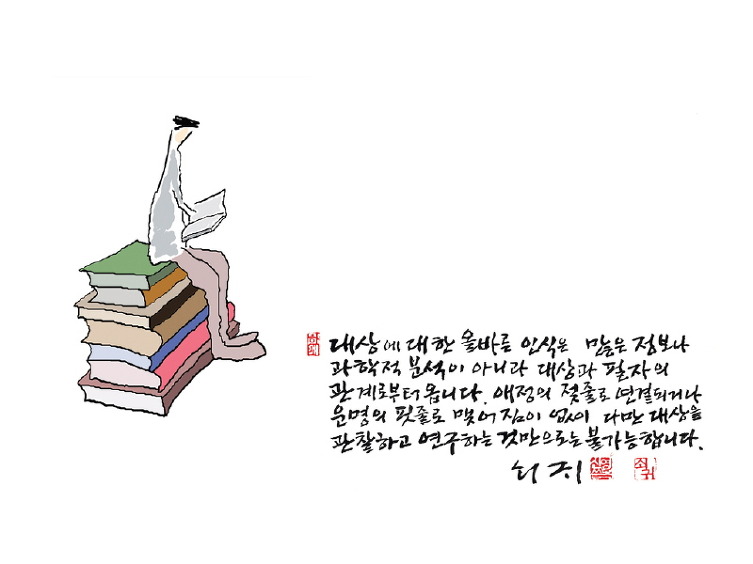 대상에 대한 올바른 인식은 많은 정보나
과학적 분석이 아니라 대상과 필자의
관계로부터 옵니다. 애정의 젖줄로 연결되거나
운명의 핏줄로 맺어짐이 없이 다만 대상을
관찰하고 연구하는 것만으로는 불가능합니다.